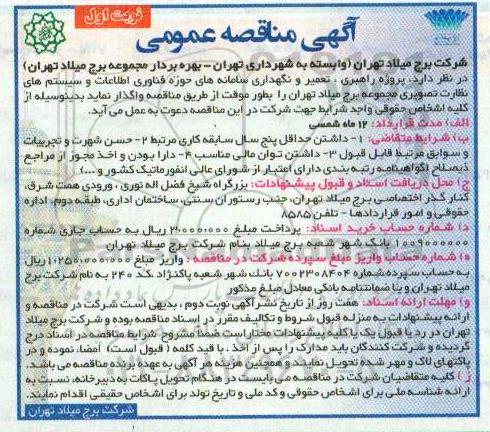 نوبت اول
آگهی مناقصه عمومی
شرکت برج میلاد تهران (وابسته به شهرداری تهران - بهره بردار مجموعه برج میلاد تهران)
در نظر دارد، پروژه راهبری، تعمیر و نگهداری سامانه های حوزه فناوری اطلاعات و سیستم های
نظارت تصویری مجموعه برج میلاد تهران را بطور موقت از طریق مناقصه واگذار نماید بدینوسیله از
کلیه اشخاص حقوقی واجد شرایط جهت شرکت در این مناقصه دعوت به عمل می آید.
الف) مدت قرارداد: ۱۲ ماه شمسی
ب) شرایط متقاضی: ۱- داشتن حداقل پنج سال سابقه کاری مرتبط ۲- حسن شهرت و تجربیات
و سوابق مرتبط قابل قبول ۳- داشتن توان مالی مناسب ۴- دارا بودن و اخذ مجوز از مراجع
ذیصلاح (گواهینامه رتبه بندی دارای اعتبار از شورای عالی انفورماتیک کشور و ...)
ج) محل دریافت اسناد و قبول پیشنهادات: بزرگراه شیخ فضل اله نوری، ورودی همت شرق،
کنار گذر اختصاصی برج میلاد تهران، جنب رستوران سنتی، ساختمان اداری، طبقه دوم، اداره
حقوقی و امور قراردادها - تلفن ۸۵۸۵
د) شماره حساب خرید اسناد: پرداخت مبلغ ریال به حساب جاری شماره
بانک شهر شعبه برج میلاد بنام شرکت برج میلاد تهران
ه) شماره حساب واریز مبلغ سپرده شرکت در مناقصه: واریز مبلغ ریال
به حساب سپرده شماره ۷۰۰۲۳۰۸۴۰۴ بانک شهر شعبه پاکنژاد کد ۲۴۰ به نام شرکت برج
میلاد تهران و یا ضمانتنامه بانکی معادل مبلغ مذکور
و) مهلت ارائه اسناد: هفت روز از تاریخ نشر آگهی نوبت دوم، بدیهی است شرکت در مناقصه و
ارائه پیشنهادات به منزله قبول شروط و تکالیف مقرر در اسناد مناقصه بوده و شرکت برج میلاد
تهران در رد یا قبول یک یا کلیه پیشنهادات مختار است ضمناً مشروح شرایط مناقصه در اسناد درج
گردیده و شرکت کنندگان باید مدارک را پس از اخذ، با قید کلمه (قبول است) امضا، نموده و در
پاکتهای لاک و مهر شده تحویل نمایند و همچنین هزینه هر آگهی به عهده برنده مناقصه می باشد.
ز) کلیه متقاضیان شرکت در مناقصه می بایست در هنگام تحویل پاکات به دبیرخانه، نسبت به
ارائه شناسه ملی برای اشخاص حقوقی و کد ملی و تاریخ تولد برای اشخاص حقیقی اقدام نمایند.
شرکت برج میلاد تهران